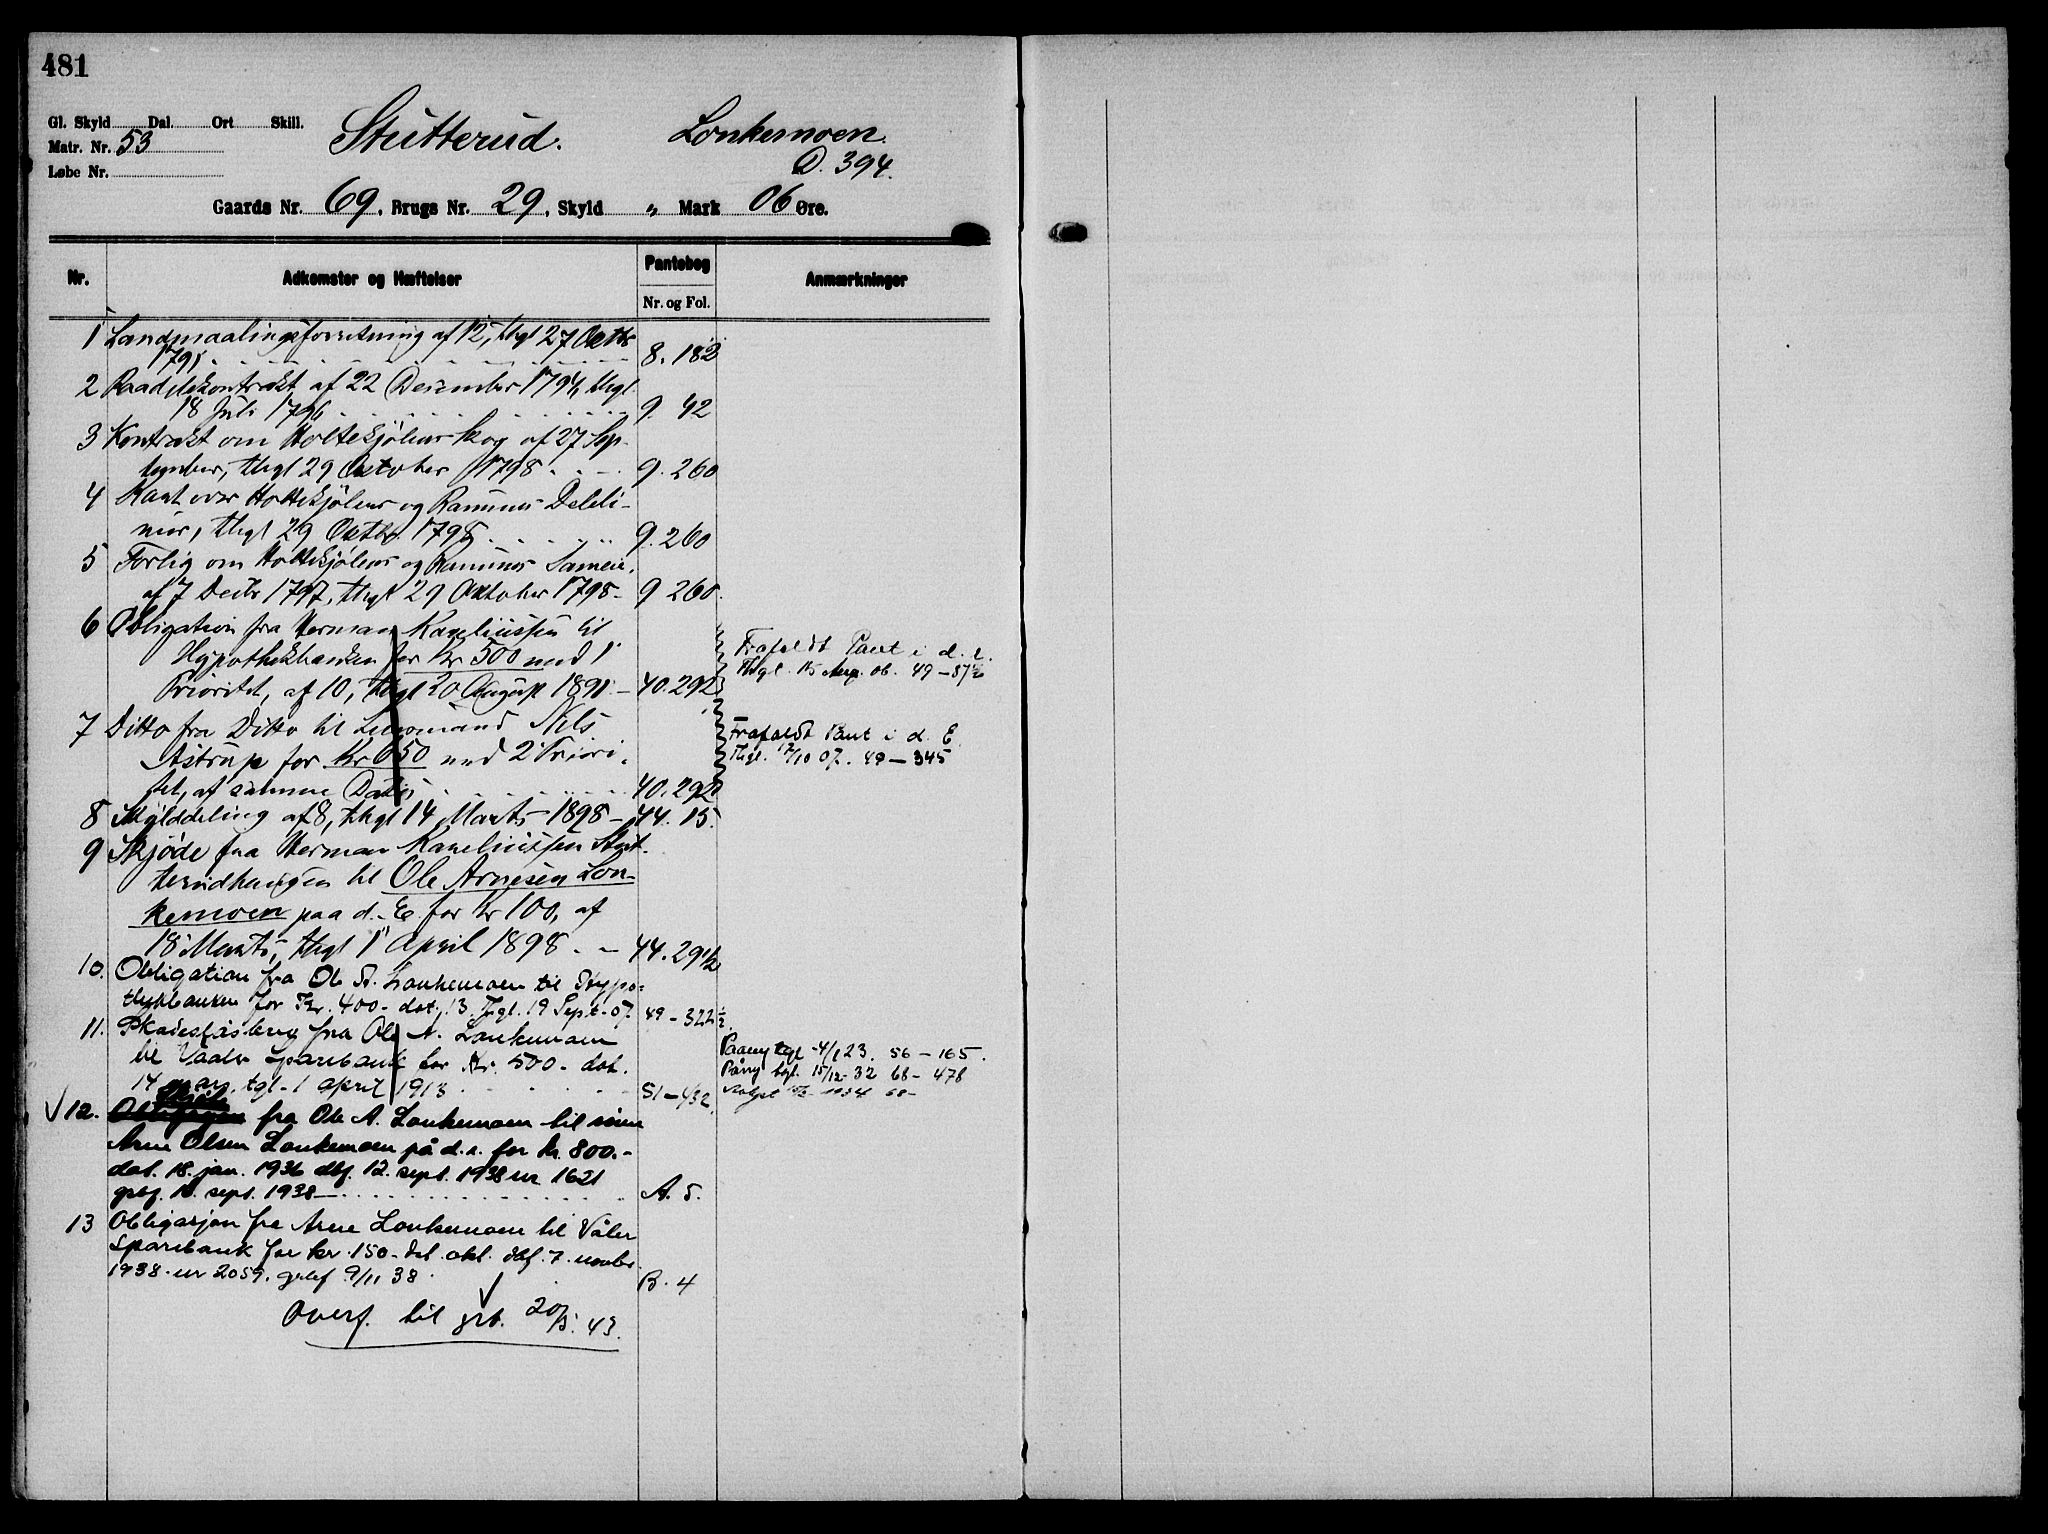 481
Gl. Skyld Dal. Ort Skill.
Matr. Nr. 53
Løbe Nr.
Stutterud. Lonkemoen.
D. 394.
Gaards Nr. 69, Brugs Nr. 29, Skyld " Mark 06 Øre.
Nr. Adkomster og Hæftelser Pantebog Anmærkninger
Nr. og Fol.
1 Landmaalingsforretning af 12, thgl 27 Oktbr
1791 8. 182
2 Raadelskontrakt af 22 Desember 1794, thgl.
18 Juli 1796 9. 42
3 Kontrakt om Holtekjølens Skog af 27 Sep-
tember, thgl 29 Oktober 1798 9. 260
4 Kart over Holtekjølens og Deleli-
nier, thgl 29 Oktbr 1798 9. 260
5 Forlig om Holtekjølens og Sameie,
af 7 Decbr 1797, thgl 29 Oktober 1798 - 9 260.
6 Obligation fra Herman Kareliussen til
Hypothekbanken for Kr 500 med 1
Prioritet, af 10, thgl 20 August 1891 - 40. 292
Frafaldt Pant i d. e.
Thgl. 15 Aug. 06. 49 - 37½
7 Ditto fra Ditto til Lensmand Nils
Astrup for Kr 650 med 2 Priori-
tet, af samme Dato 40. 292
Frafaldt Pant i d. E.
Thgl. 17/10 07. 49 - 345
8 Skylddeling af 8, thgl 14 Marts 1898 - 44. 15.
9 Skjøde fra Herman Kareliussen Stut-
terudhaugen til Ole Arnesen Lon-
kemoen paa d. E. for Kr 100, af
18 Marts, thgl 1 April 1898 - 44. 29½
10. Obligation fra Ole A. Lonkemoen til Hypo-
thekbanken for Kr. 400 - dat. 13. Tgl. 19 Sept. 07. 49 - 322½.
11. Skadesløsbrev fra Ole A. Lonkemoen
til Vaaler Sparebank for Kr. 500 - dat.
14 mars. tgl. 1 april 1913 51 - 432
Paany tgl 4/1 23. 56 - 165.
Påny tgl. 15/12 - 32 68 - 478
12. Skjøte fra Ole A. Lonkemoen til sønn
Arne Olsen Lonkemoen på d.e. for kr. 800.-
dat. 18. jan. 1936 dbf. 12. sept. 1938 nr 1621
sept. 1938 A. 5.
13 Obligasjon fra Arne Lonkemoen til Våler
Sparebank for kr. 150 - dat. okt. dbf. 7. novbr.
1938 - nr 2059. 9/11 38 B. 4
Overf. til grb. 20/5. 43.